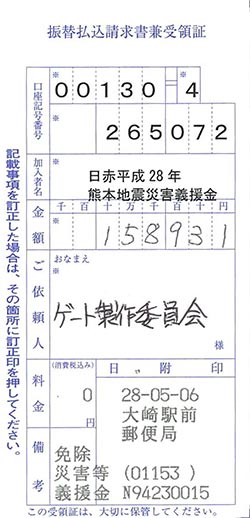 振替払込請求書兼受領証
口座記号番号
※
00130 4
※
265072
加入者名
※
日赤平成28年
熊本地震災害義援金
金額
千百十万千百十円
※
158931
ご依頼人
おなまえ
※
ゲート製作委員会
様
料金
(消費税込み)
0
円
日附印
28-05-06
大崎駅前
郵便局
備考
免除
災害等 (01153 )
義援金 N94230015
記載事項を訂正した場合は、その箇所に訂正印を押してください。
この受領証は、大切に保管してください。